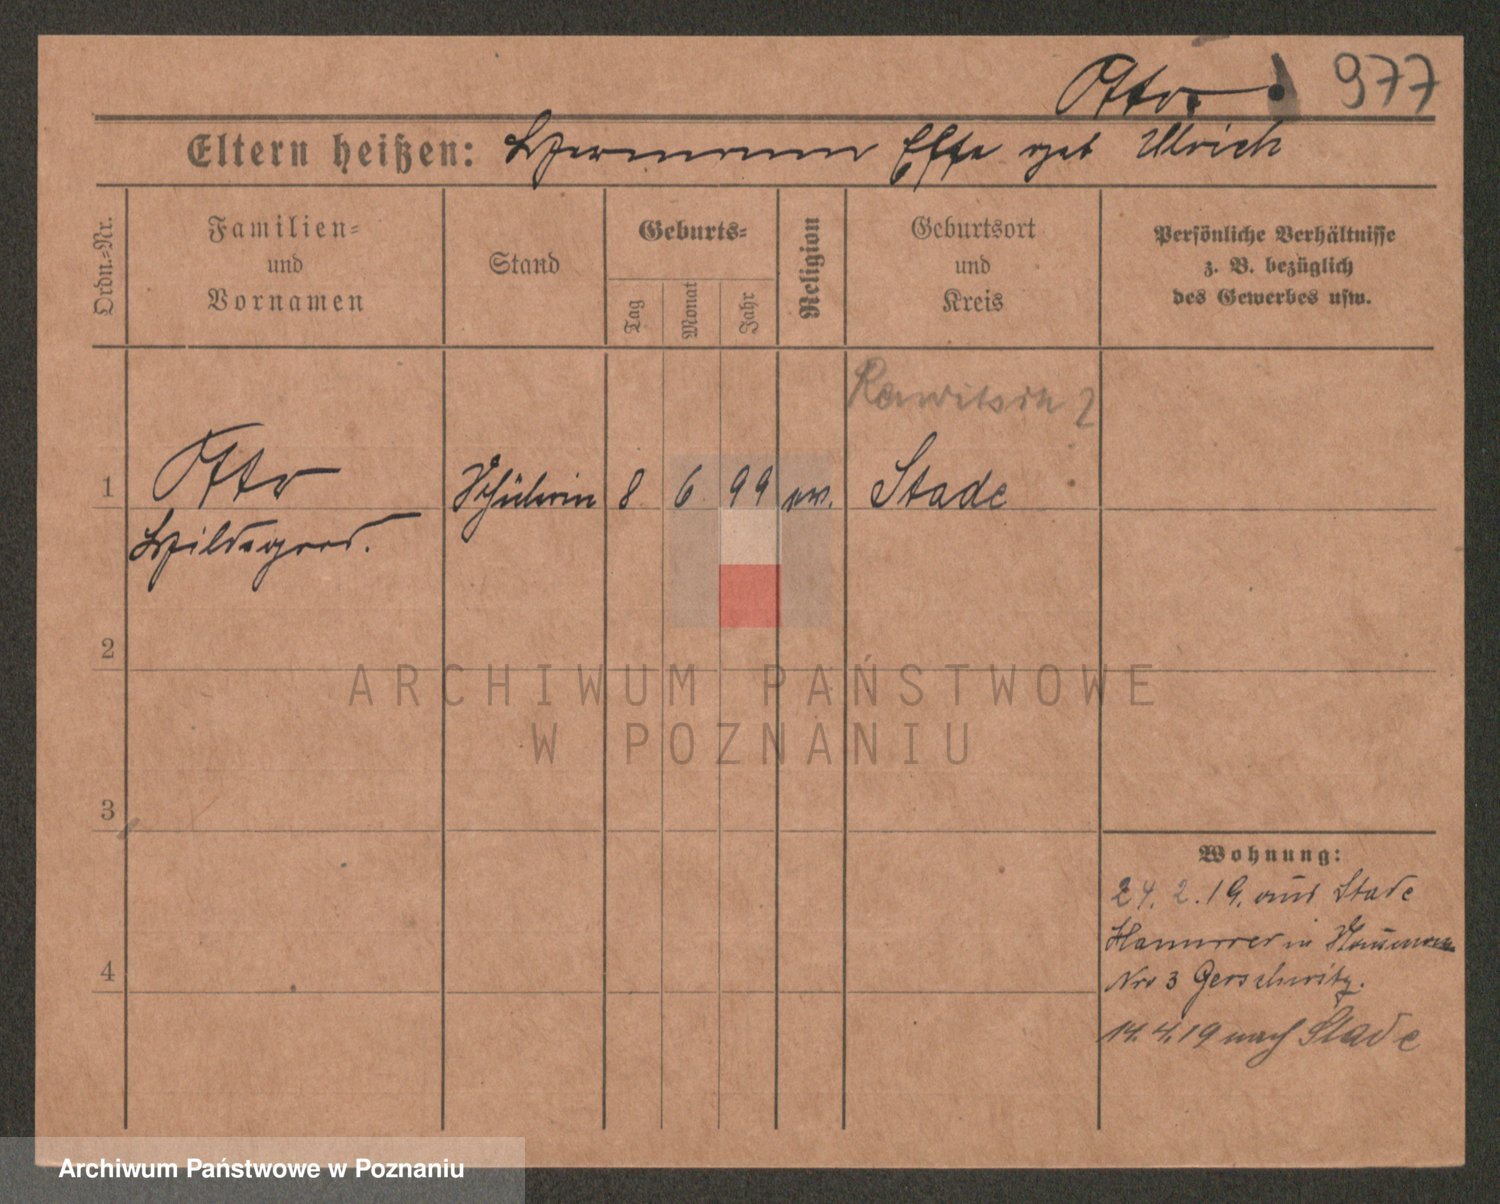 Otto. 977
Eltern heißen: Hermann Else geb Ulrich
Ordn.-Nr.
Familien-
und
Vornamen
Stand
Geburts-
Tag
Monat
Jahr
Religion
Geburtsort
und
Kreis
Persönliche Verhältnisse
z. B. bezüglich
des Gewerbes usw.
Rawitsch
1 Otto Schülerin 8 6 99 ev. Stade
Hildegard.
2
3
4
Wohnung:
24. 2. 19. aus Stade
Hannover in
Nro 3 Gerschwitz.
14. 4. 19 nach Stade
ARCHIWUM PAŃSTWOWE
W POZNANIU
Archiwum Państwowe w Poznaniu